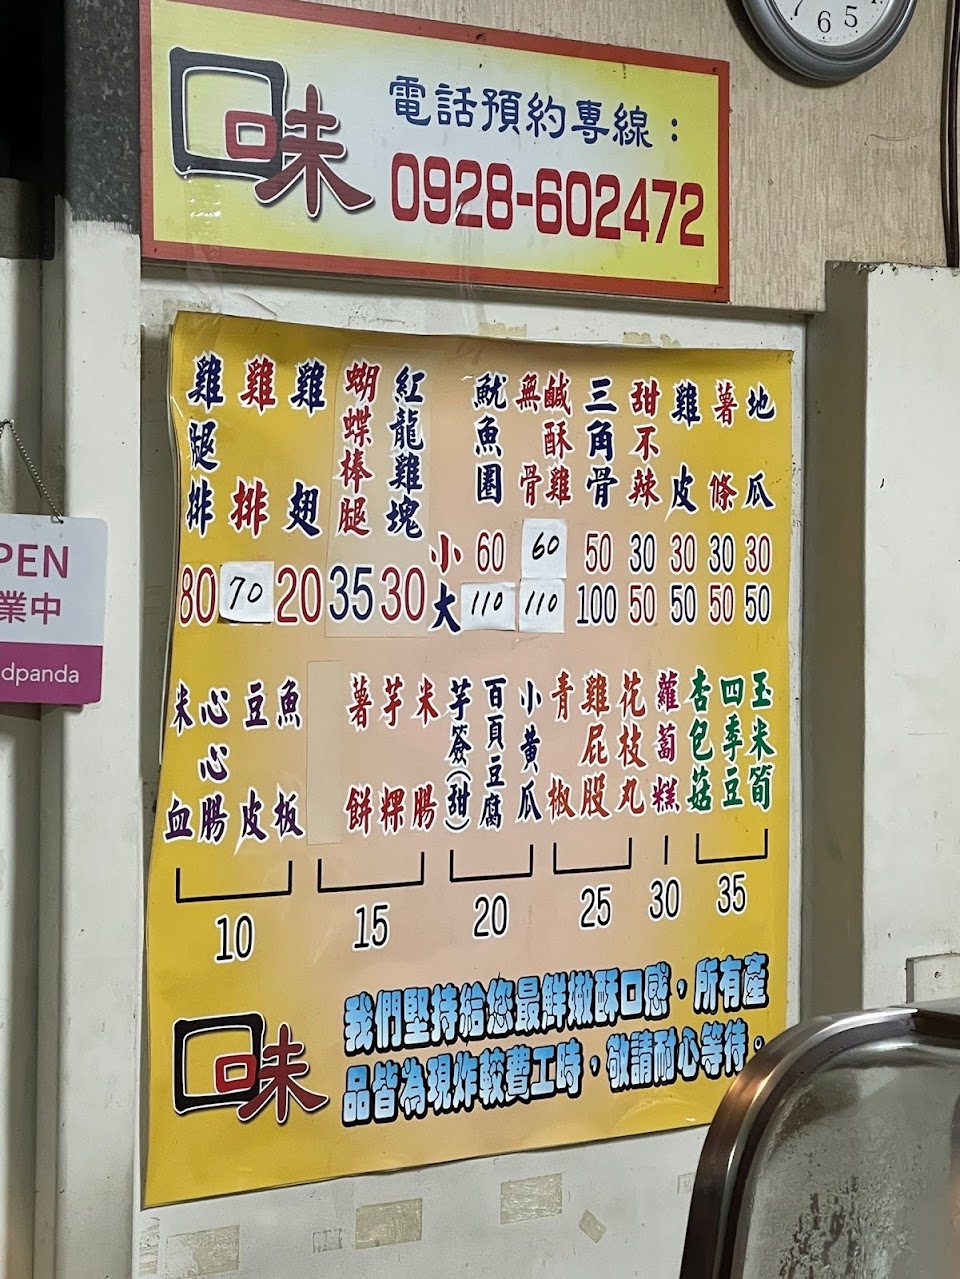 7 6 5
回味
電話預約專線：
0928-602472
雞腿排
雞排
雞翅
蝴蝶棒腿
紅龍雞塊
魷魚圈
無骨
鹹酥雞
三角骨
甜不辣
雞皮
薯條
地瓜
小 60 60 50 30 30 30 30
80 70 20 35 30 大 110 110 100 50 50 50 50
米血
心心腸
豆皮
魚板
薯餅
芋粿
米腸
芋簽(甜)
百頁豆腐
小黃瓜
青椒
雞屁股
花枝丸
蘿蔔糕
杏包菇
四季豆
玉米筍
10 15 20 25 30 35
回味
我們堅持給您最鮮嫩酥口感，所有產
品皆為現炸較費工時，敬請耐心等待。
PEN
業中
dpanda